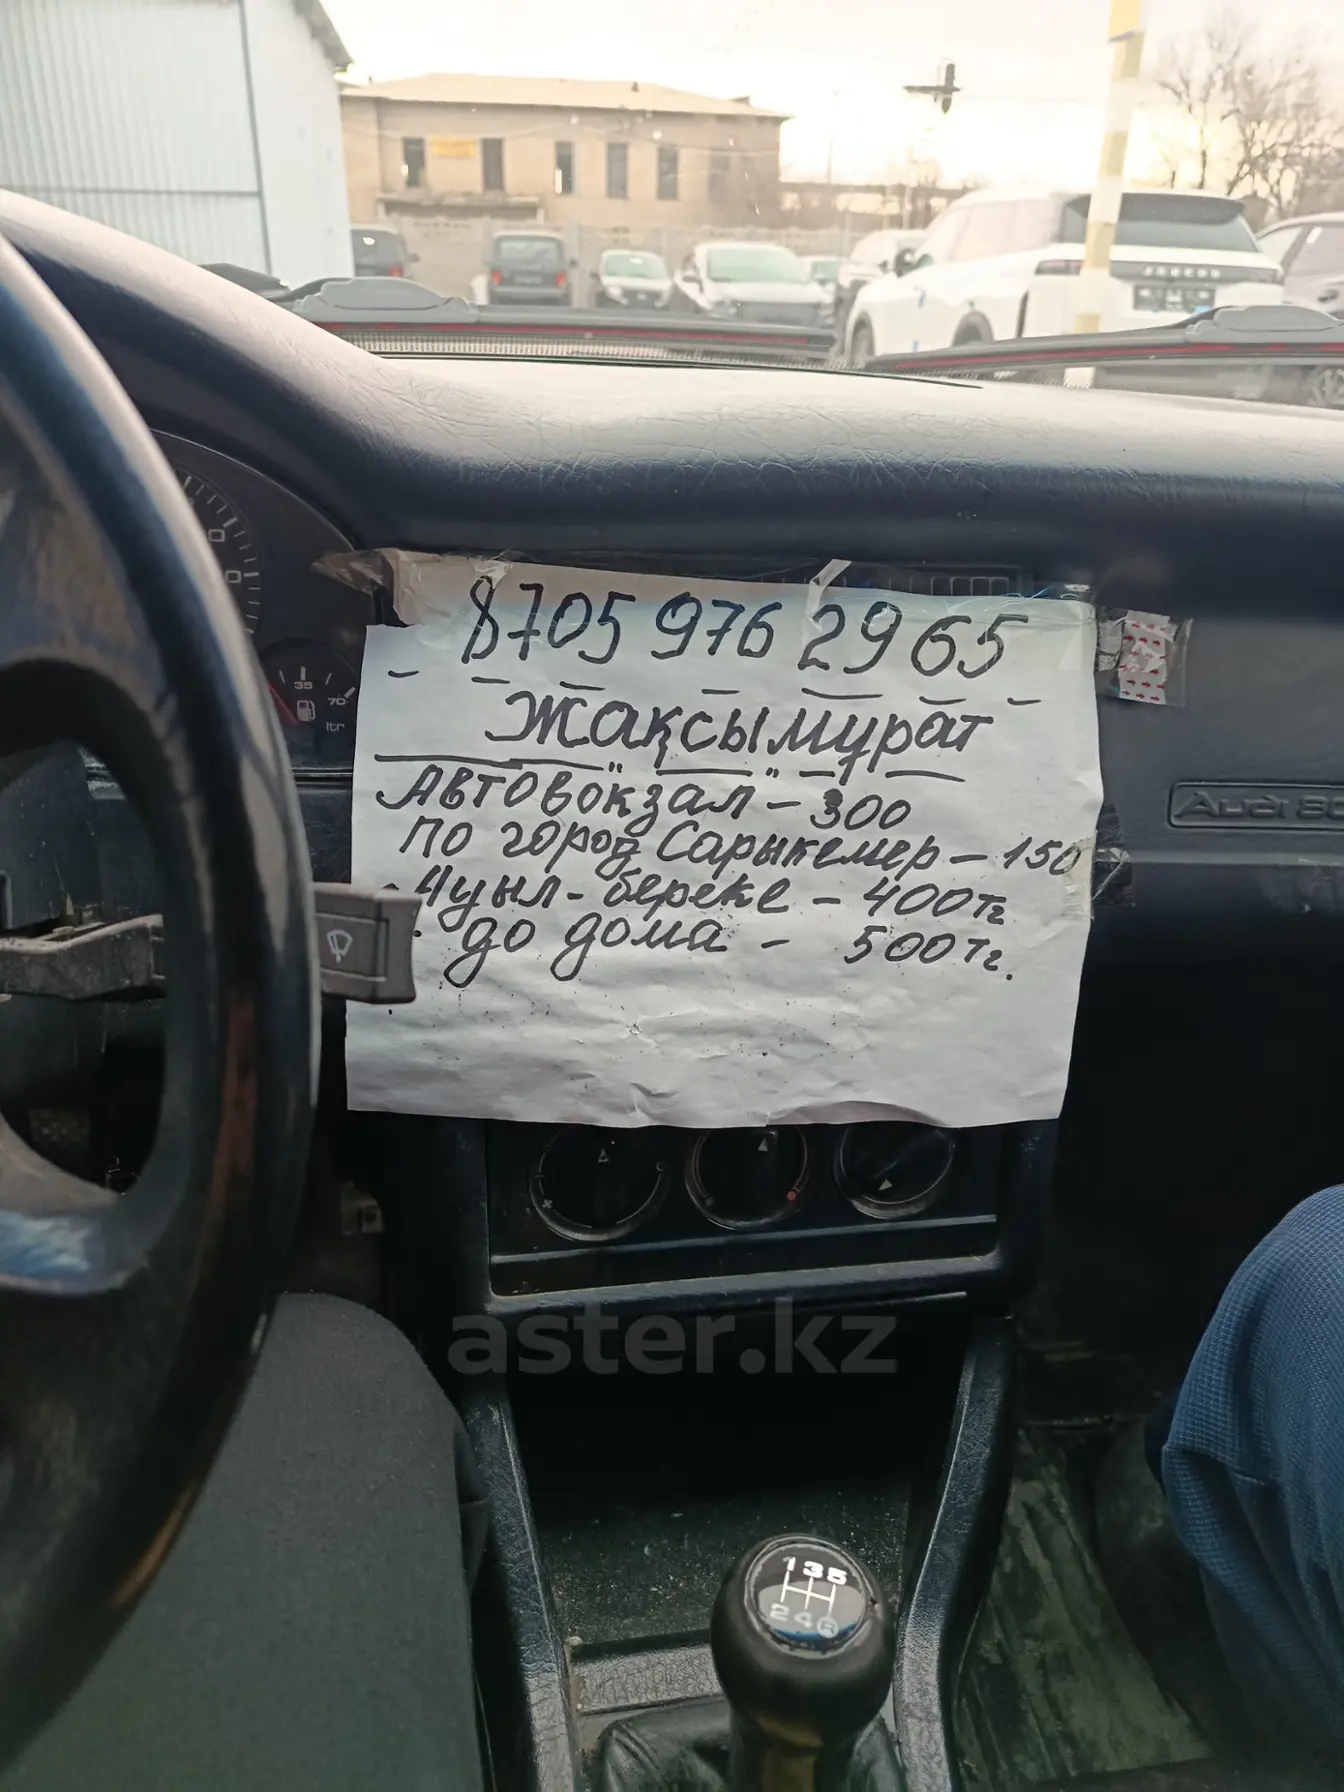 JAECOO
8705 976 2965
Жақсымұрат
"Автовокзал" - 300
По город Сарыкемер - 150
Ауыл-береке - 400 тг
до дома - 500 тг.
35
70
ltr
Audi 80
aster.kz
1 3 5
2 4 R